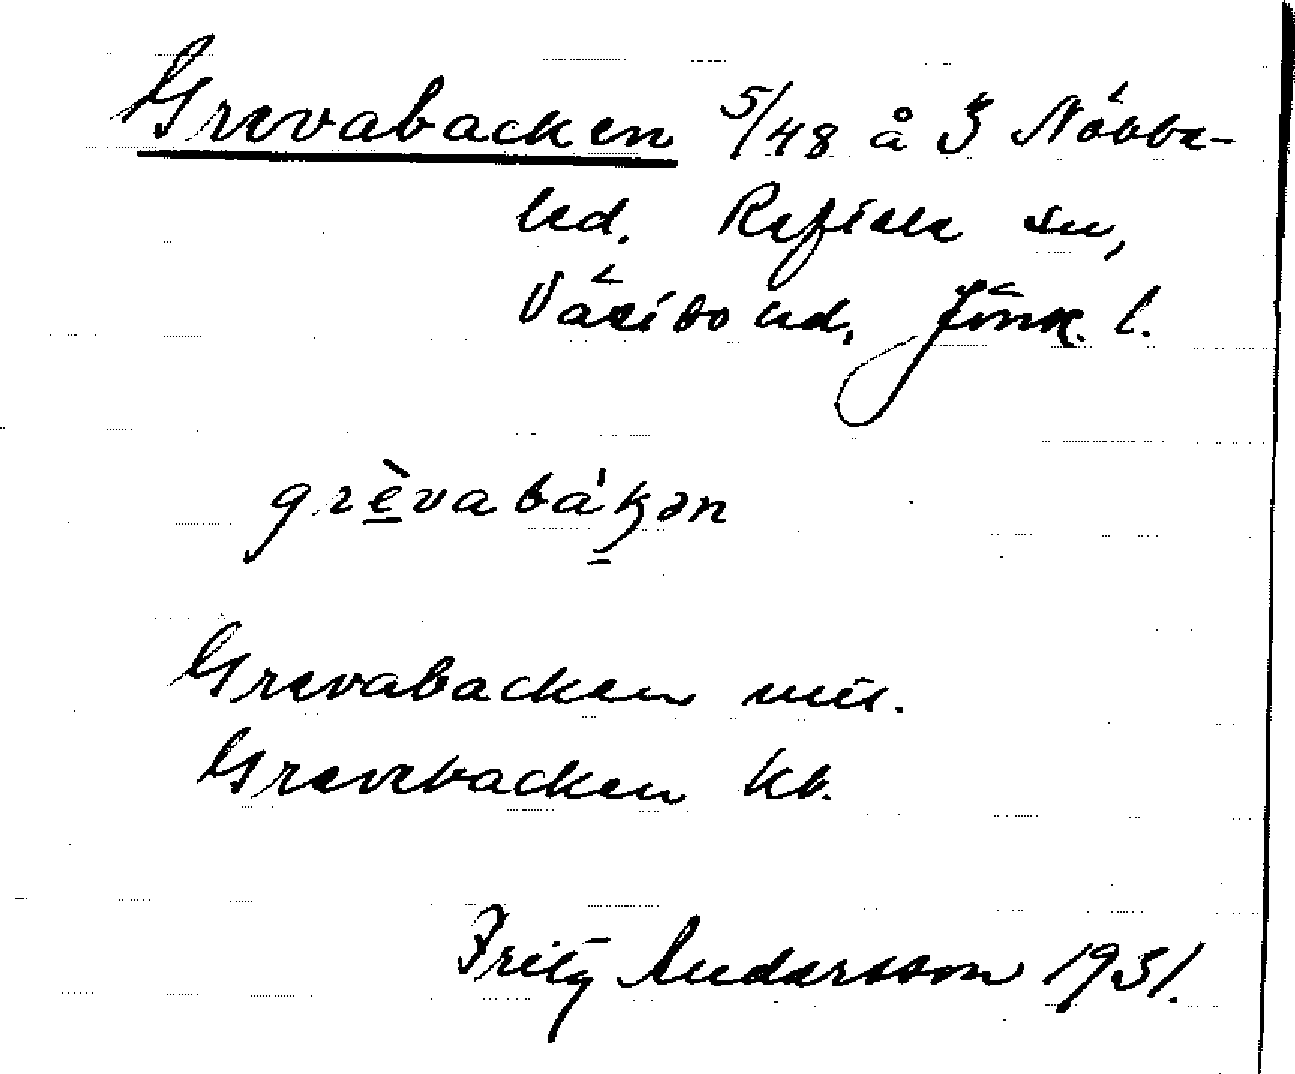 Grevabacken 5/48 å 3 Nöbbe-
led. Reftele sn,
Västbo hd, Jönk. l.
grèvabákən
Grevabacken mtl.
Grevebacken kb.
Fritz Andersson 1931.